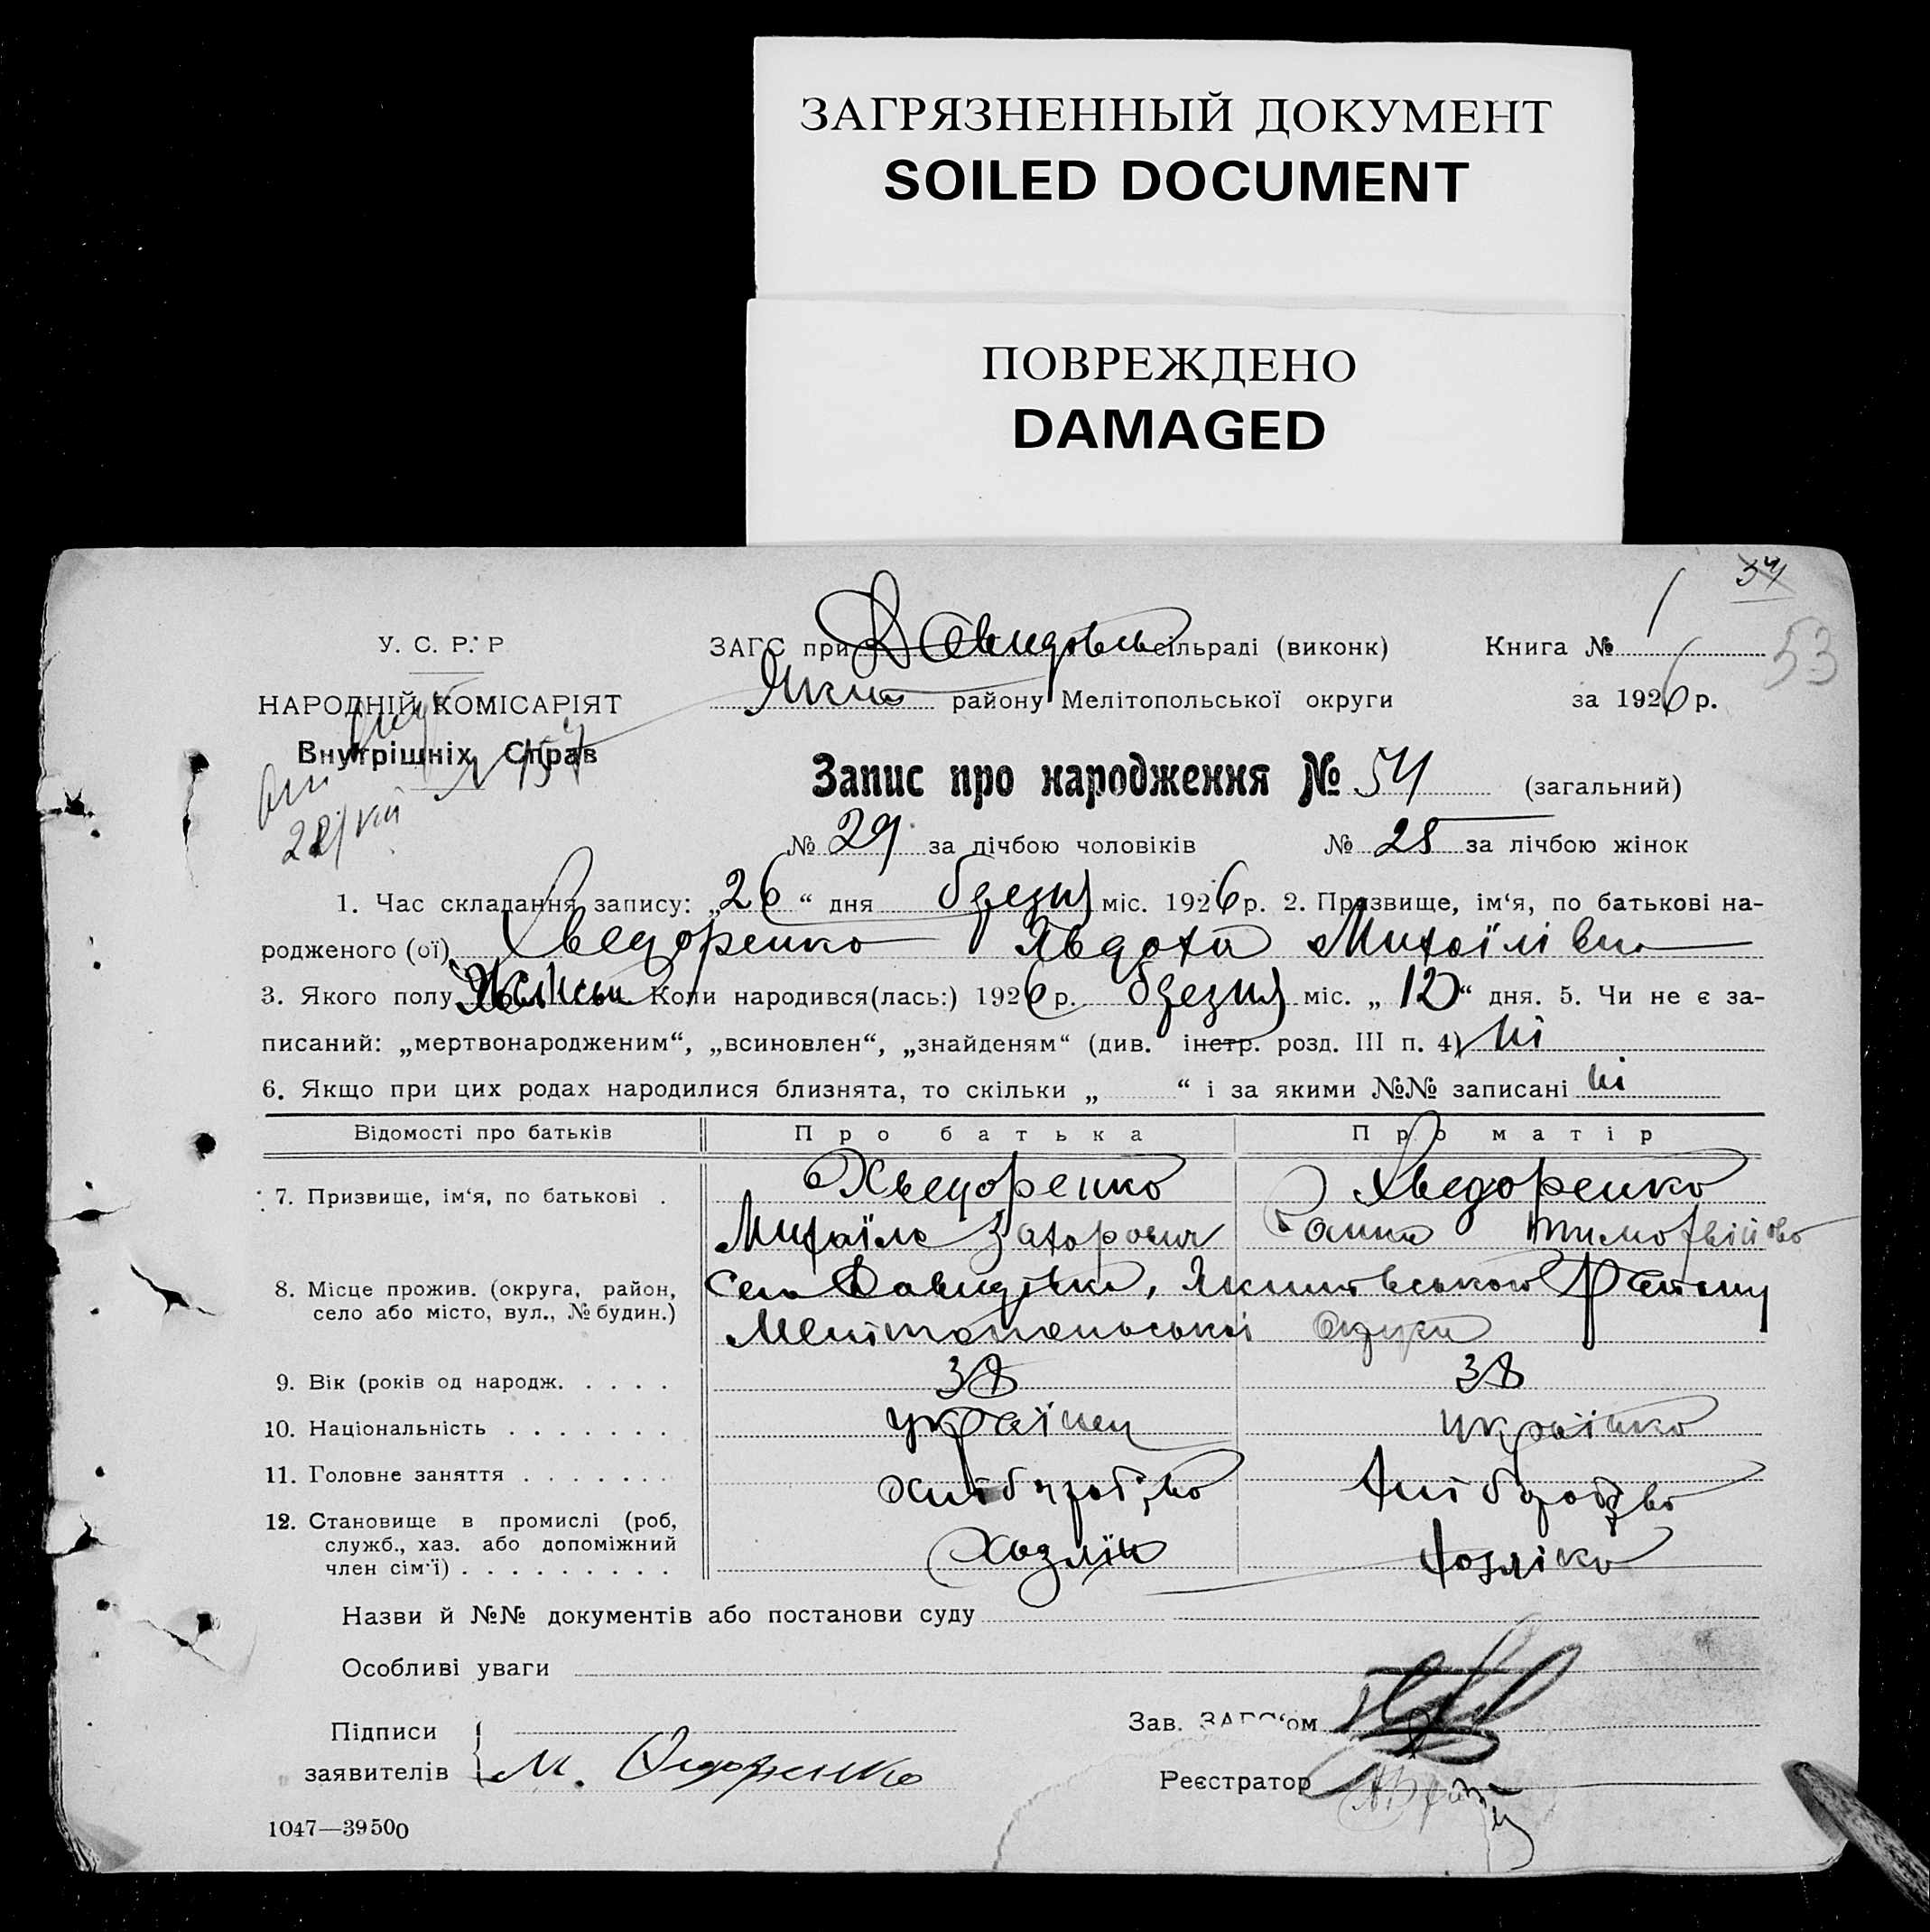 ЗАГРЯЗНЕННЫЙ ДОКУМЕНТ
SOILED DOCUMENT
ПОВРЕЖДЕНО
DAMAGED
34
53
У. С. Р. Р
ЗАГС при Давидовськ сільраді (виконк)
Книга № 1
НАРОДНІЙ КОМІСАРІЯТ
Внутрішніх Справ
Яким району Мелітопольської округи
за 1926 р.
Запис про народження № 54 (загальний)
№ 29 за лічбою чоловіків № 25 за лічбою жінок
1. Час складання запису: „26“ дня березня міс. 1926 р. 2. Призвище, ім‘я, по батькові на-
родженого (ої) Хведоренко Явдоха Михаїлівна
3. Якого полу Жіночьи Коли народився(лась:) 1926 р. березня міс. „12“ дня. 5. Чи не є за-
писаний: „мертвонародженим“, „всиновлен“, „знайденям“ (див. інстр. розд. III п. 4) ні
6. Якщо при цих родах народилися близнята, то скільки „ “ і за якими №№ записані ні
Відомості про батьків Про батька Про матір
7. Призвище, ім‘я, по батькові . Хведоренко Хведоренко
Михаїло Захарович Ганна Тимофвійово
8. Місце прожив. (округа, район,
село або місто, вул., № будин.)
Село Давидівка, Якимовського району
Мелітопольської округи
9. Вік (років од народж. . . . . 38 38
10. Національність . . . . . . . українец українка
11. Головне заняття . . . . . . . хліборобство хліборобство
12. Становище в промислі (роб,
служб., хаз. або допоміжний
член сім‘ї) . . . . . . . . . Хазяїн хозяіка
Назви й №№ документів або постанови суду
Особливі уваги
Підписи
заявителів М. Федоренко
Зав. ЗАГС‘ом
Реєстратор
1047—39500